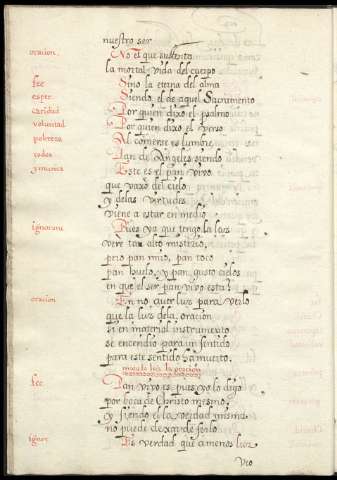 nuestro ser
oracion. No el que sustenta
la mortal vida del cuerpo
fee Sino la eterna del alma
esper. Siendo, el de aquel Sacramento
caridad Por quien dixo el psalmo
voluntad Por quien dixo el verso
pobreza Al comerse es lumbre
todos Pan de Angeles siendo
y musica Este es el pan vivo
que vaxo del cielo
y de las virtudes
viene a estar en medio
ignoran. Pues ya que tengo la luz
vere tan alto misterio,
pero pan miro, pan toco
pan huelo, y pan gusto cielos
en que el ser pan vivo esta?
oracion En no aver luz para verlo
que la luz dela oración
si en material instrumento
se encendio para un sentido
para este sentido ha muerto.
mata la luz la oración
fee Pan vivo es, pues yo lo digo
por boca de Christo mesmo,
y siendo el la verdad mesma
no puede dexar de serlo
ignor. Es verdad que a menos luz
Veo